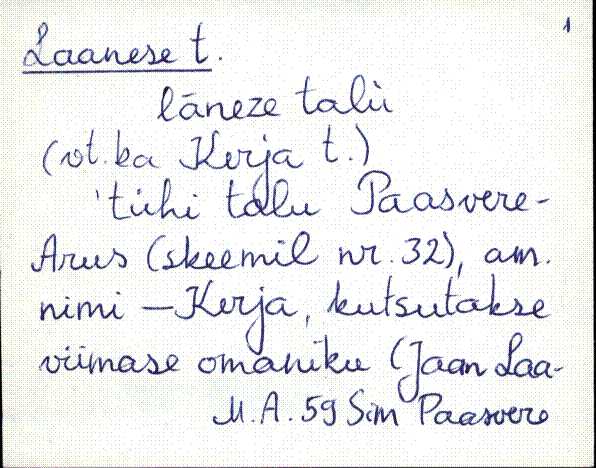 1
Laanese t.
lāneze talù
(vt. ka Kerja t.)
'tühi talu Paasvere-
Arus (skeemil nr. 32), am.
nimi – Kerja, kutsutakse
viimase omaniku (Jaan Laa-
M.A. 59 Sim Paasvere